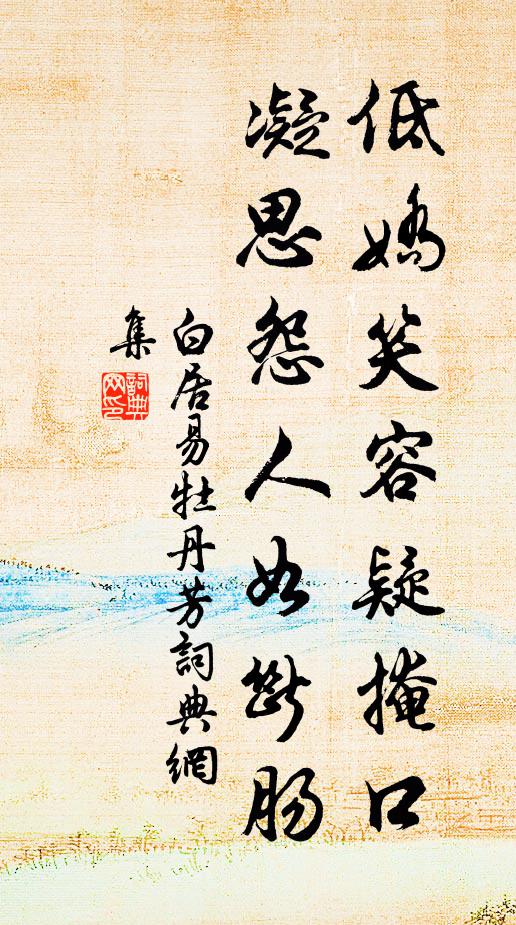 低嬌笑容疑掩口
凝思怨人如斷腸
白居易牡丹芳詞典網
集
詞典
网印